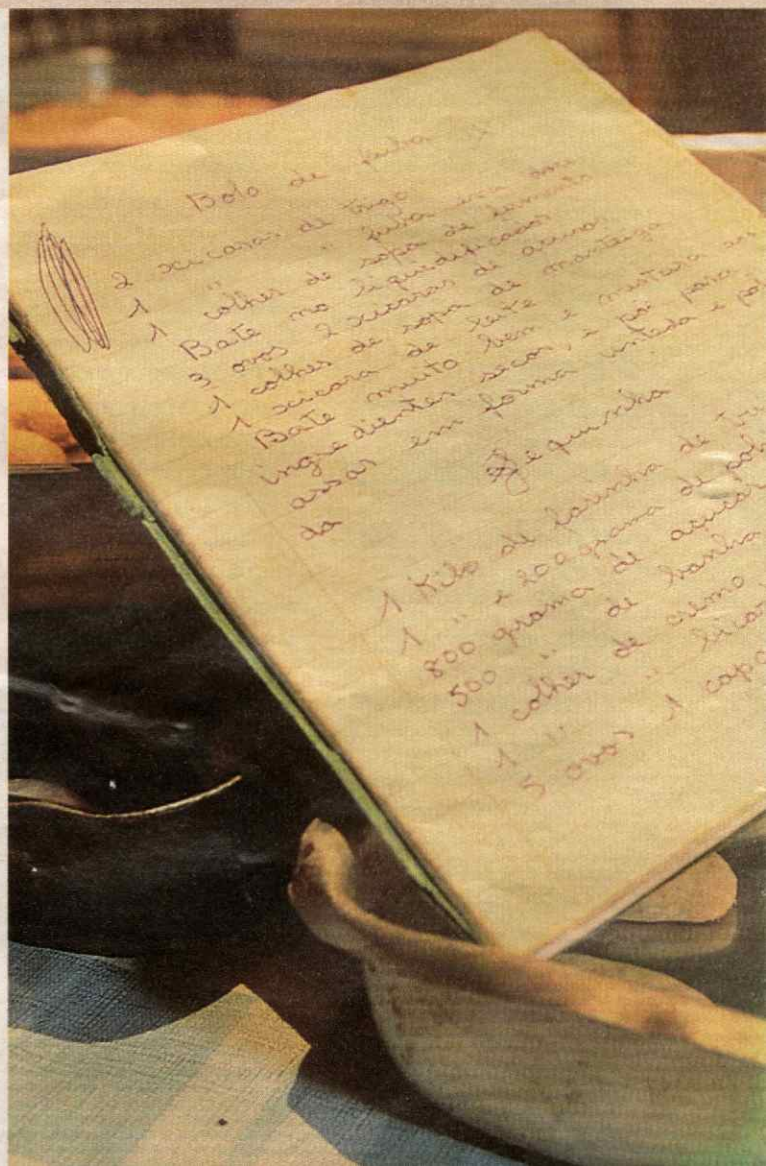 Bolo de fubá
2 xicaras de trigo
1 " fubá
1 colher de sopa de fermento
Bate no liquidificador
3 ovos 2 xicaras de
1 colher de sopa de manteiga
1 xicara de leite
Bate muito bem e mistura
ingredientes secos, e põi para
assar em forma untada e
da
1 Kilo de farinha de
1 " e 200 grama de
800 grama de açucar
500 " de banha
1 colher de cremo
1 " "
5 ovos 1